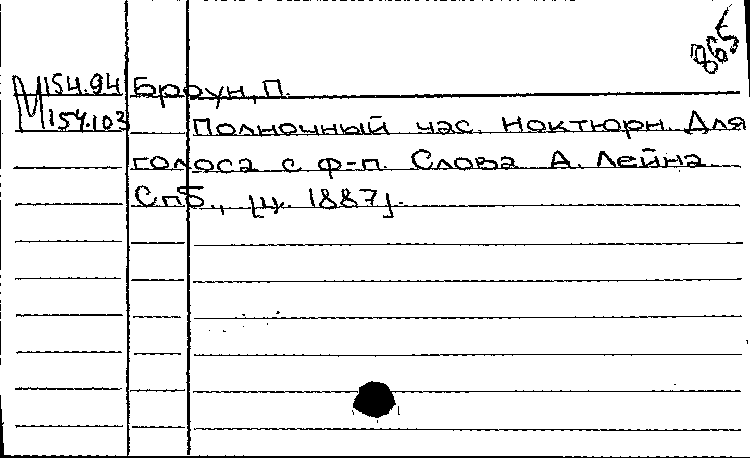 865
М 154.94 Броун, П.
154.103 Полночный час. Ноктюрн. Для
голоса с ф-п. Слова А. Лейна
Спб., [ц. 1887].